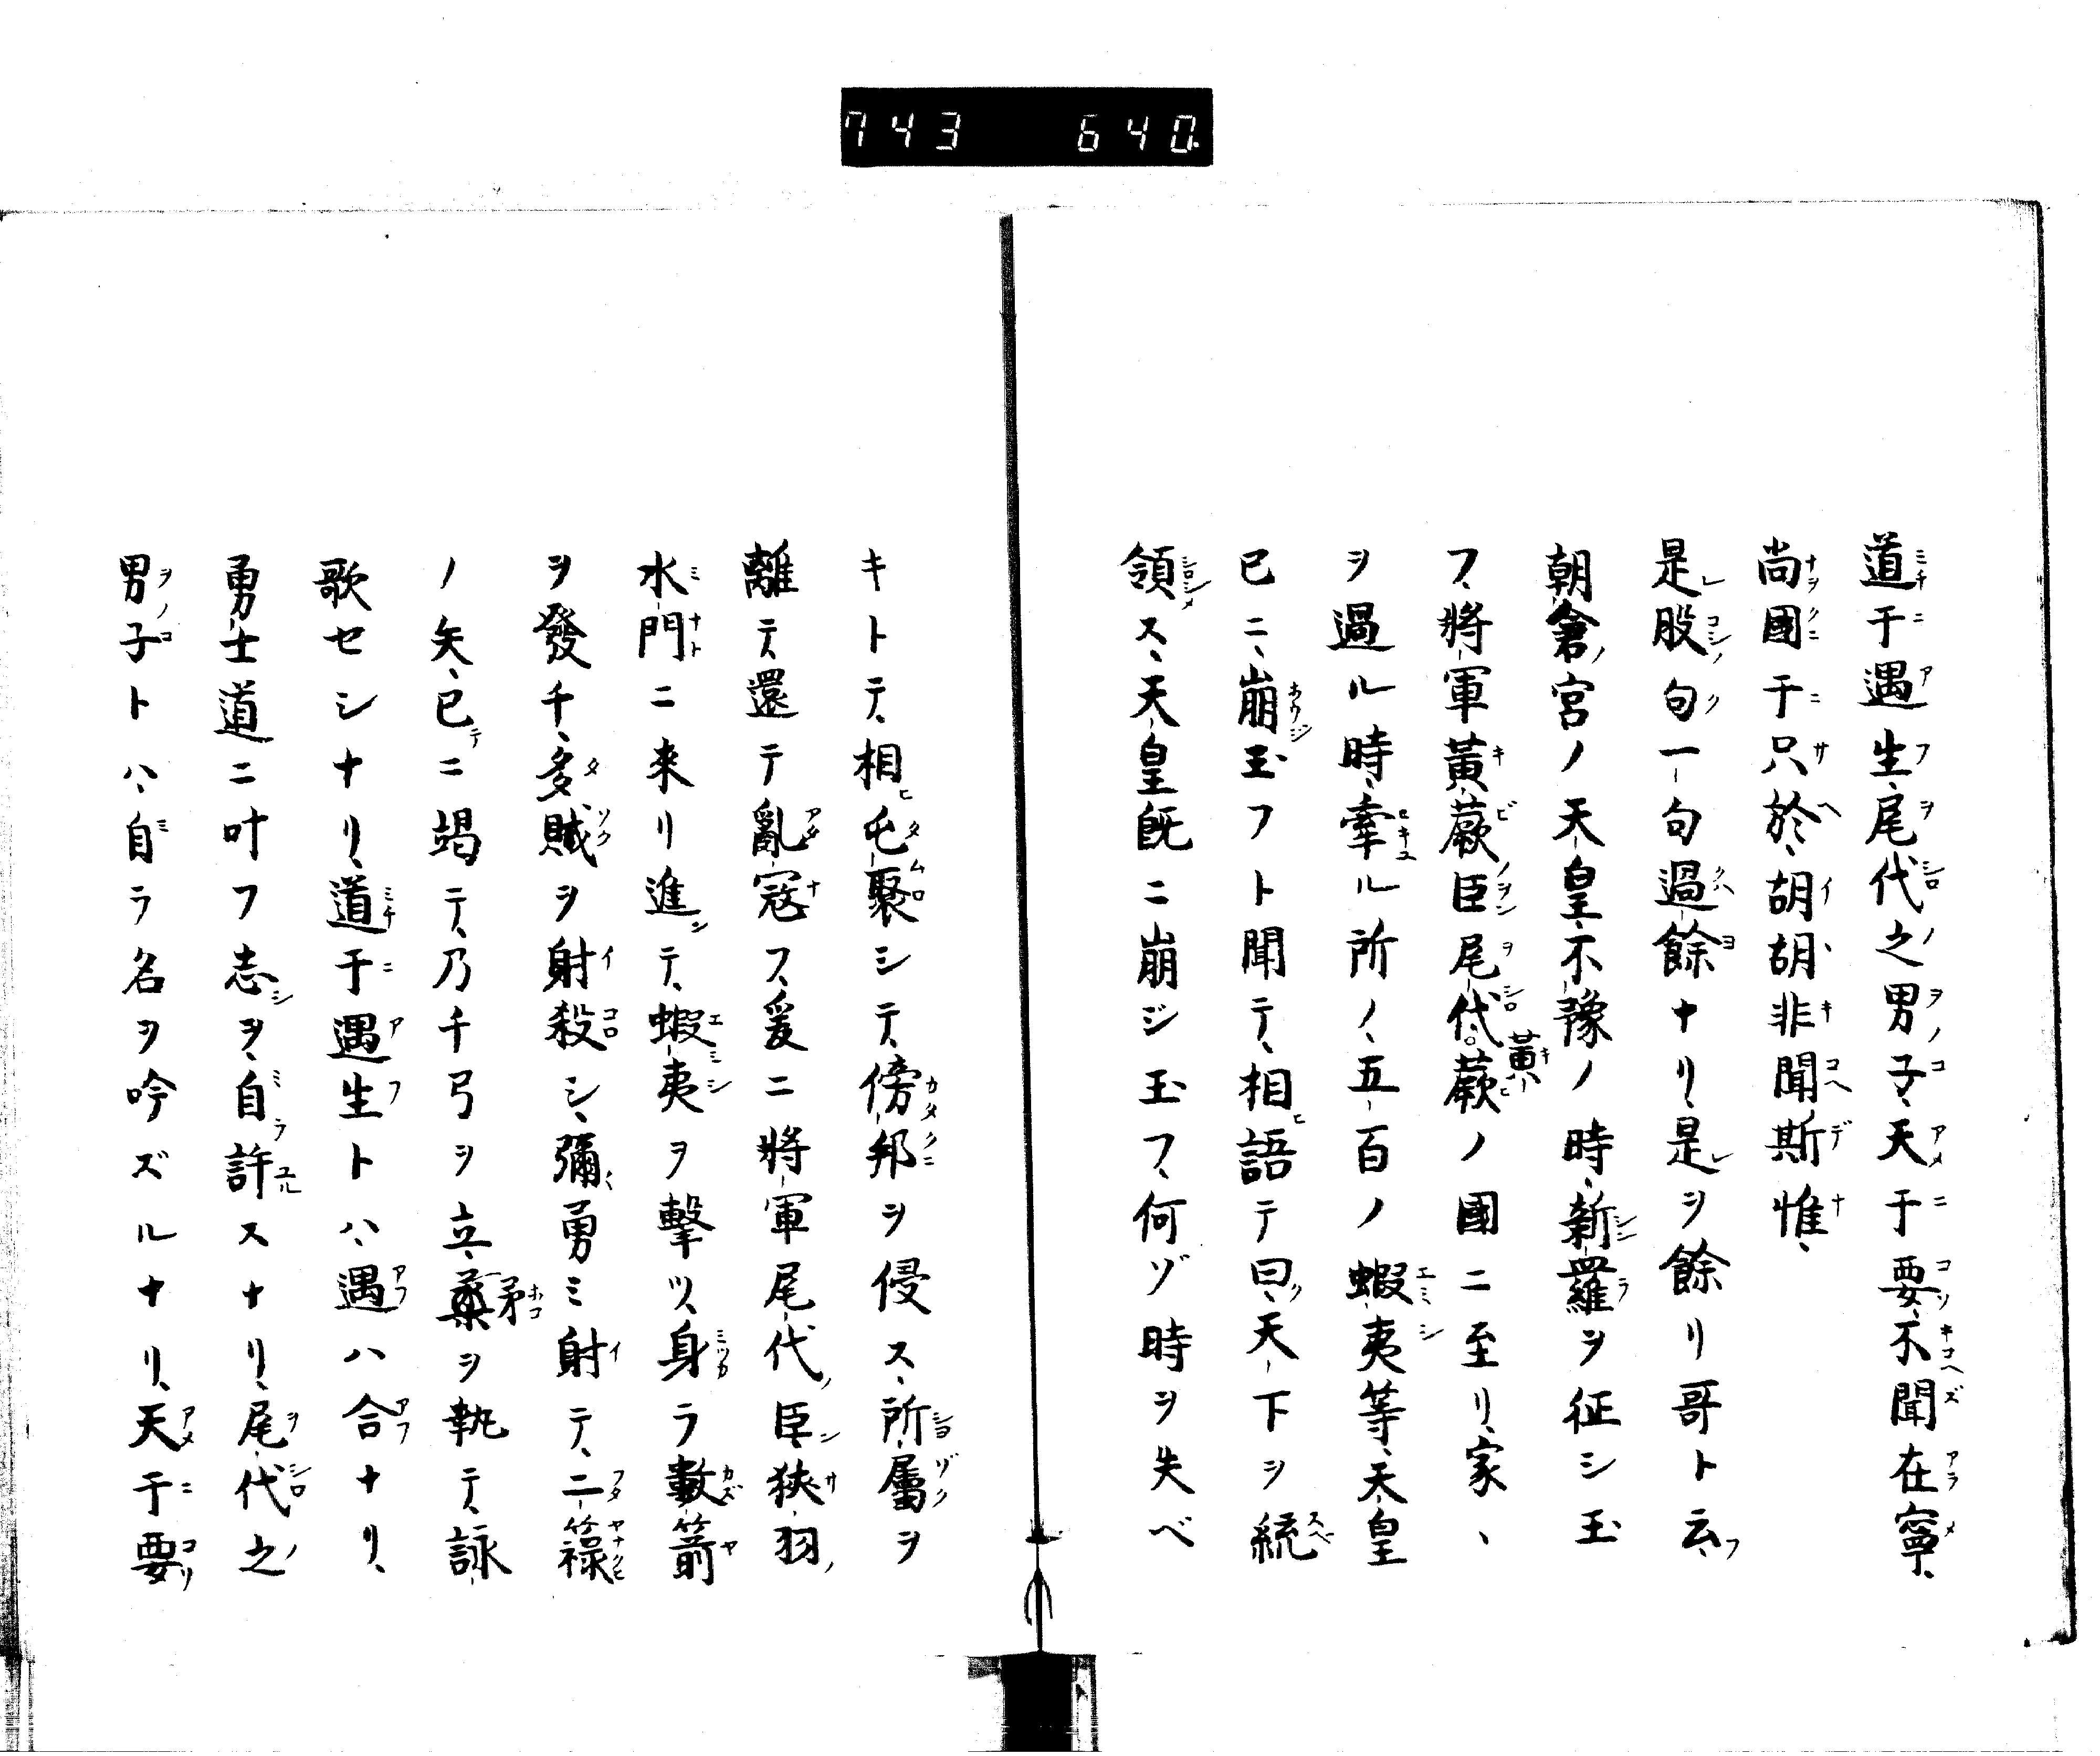 743 640
道于遇生、尾代之男子、天于要、不聞在寧、
尚國于只於、胡胡非聞斯惟、
是股句一句過餘ナリ、是ヲ餘リ哥ト云、
朝倉宮ノ天皇、不豫ノ時、新羅ヲ征シ玉
フ、將軍黃蕨臣尾代、黃蕨ノ國ニ至リ、家、
ヲ過ル時、率ル所ノ、五百ノ蝦夷等、天皇
已ニ、崩玉フト聞テ、相語テ曰、天下ヲ統
領ス、天皇既ニ崩ジ玉フ、何ゾ時ヲ失ベ
キトテ、相屯聚シテ、傍邦ヲ侵ス、所屬ヲ
離テ、還テ亂寇ス、爰ニ將軍尾代臣、狹羽
水門ニ來リ進テ、蝦夷ヲ擊ツ、身ラ數箭
ヲ發チ、多賊ヲ射殺シ、彌勇ミ射テ、二箙
ノ矢、已ニ竭テ、乃チ弓ヲ立、矛ヲ執テ、詠
歌セシナリ、道于遇生トハ、遇ハ合ナリ、
勇士道ニ叶フ志ヲ、自許スナリ、尾代之
男子トハ、自ラ名ヲ吟ズルナリ、天于要